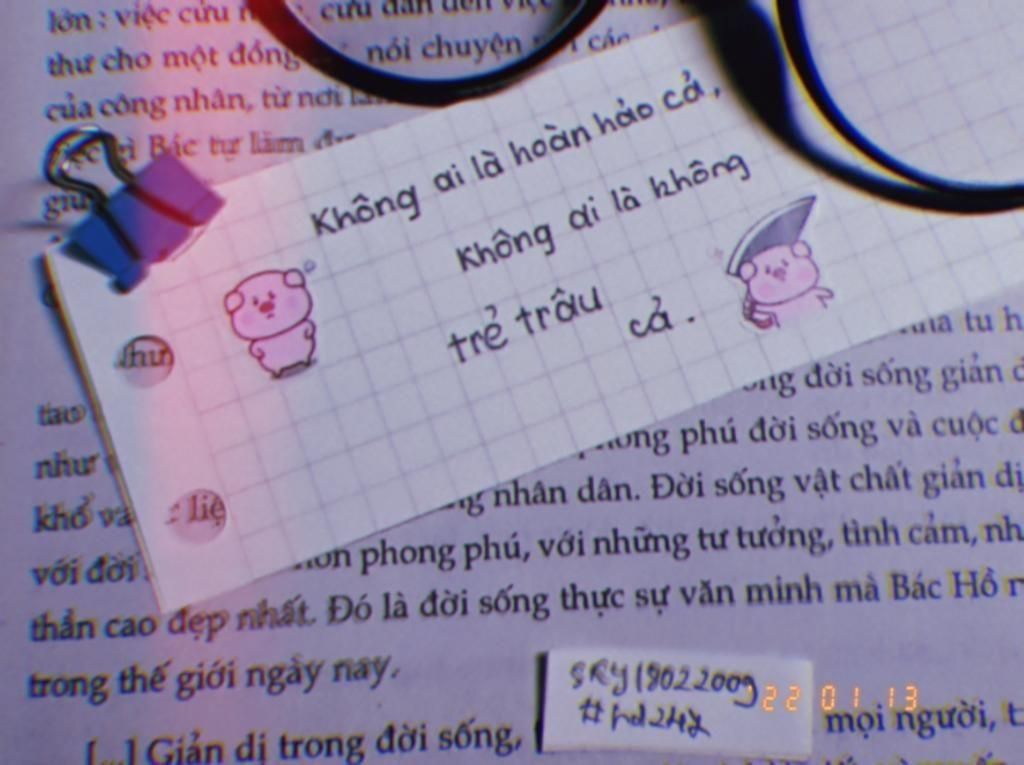 lớn : việc cứu cứu dân đến việc
thư cho một đồng nói chuyện
của công nhân, từ nơi
Bác tự làm
Không ai là hoàn hảo cả,
Không ai là không
trẻ trâu
cả.
như
liệ
đời sống giản
phú đời sống và cuộc
như
khổ nhân dân. Đời sống vật chất giản dị
với đời phong phú, với những tư tưởng, tình cảm,
thần cao đẹp nhất. Đó là đời sống thực sự văn minh mà Bác Hồ
trong thế giới ngày nay.
22 01 13
[...] Giản dị trong đời sống, mọi người,